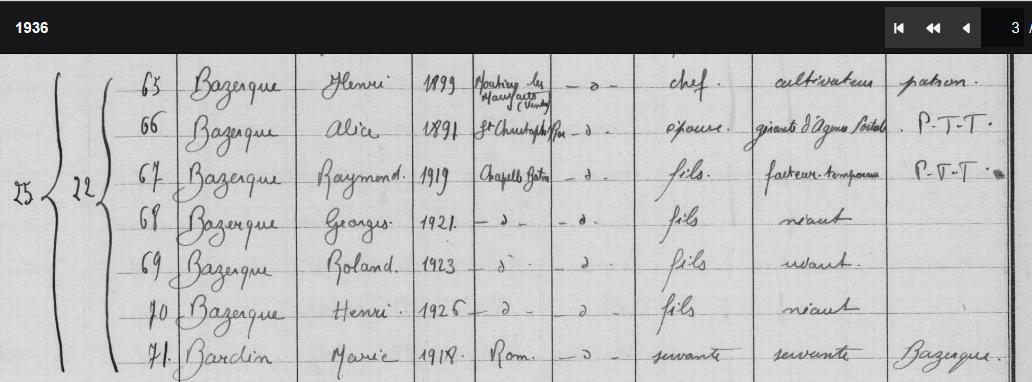 1936
3 /
25 22
65 Bazerque Henri 1899 Moutiers les Mauxfaits (Vendée) - d - chef. cultivateur patron.
66 Bazerque Alice 1891 St Christophe - d - épouse. gérante d'Agence Postale P.T.T.
67 Bazerque Raymond. 1919 Chapelle Bâton - d - fils. facteur temporaire P.T.T.
68 Bazerque Georges. 1921. - d - - d - fils néant
69 Bazerque Roland. 1923 - d - - d - fils néant.
70 Bazerque Henri. 1926 - d - - d - fils néant
71. Bardin Marie 1918. Rom. - d - servante servante Bazerque.